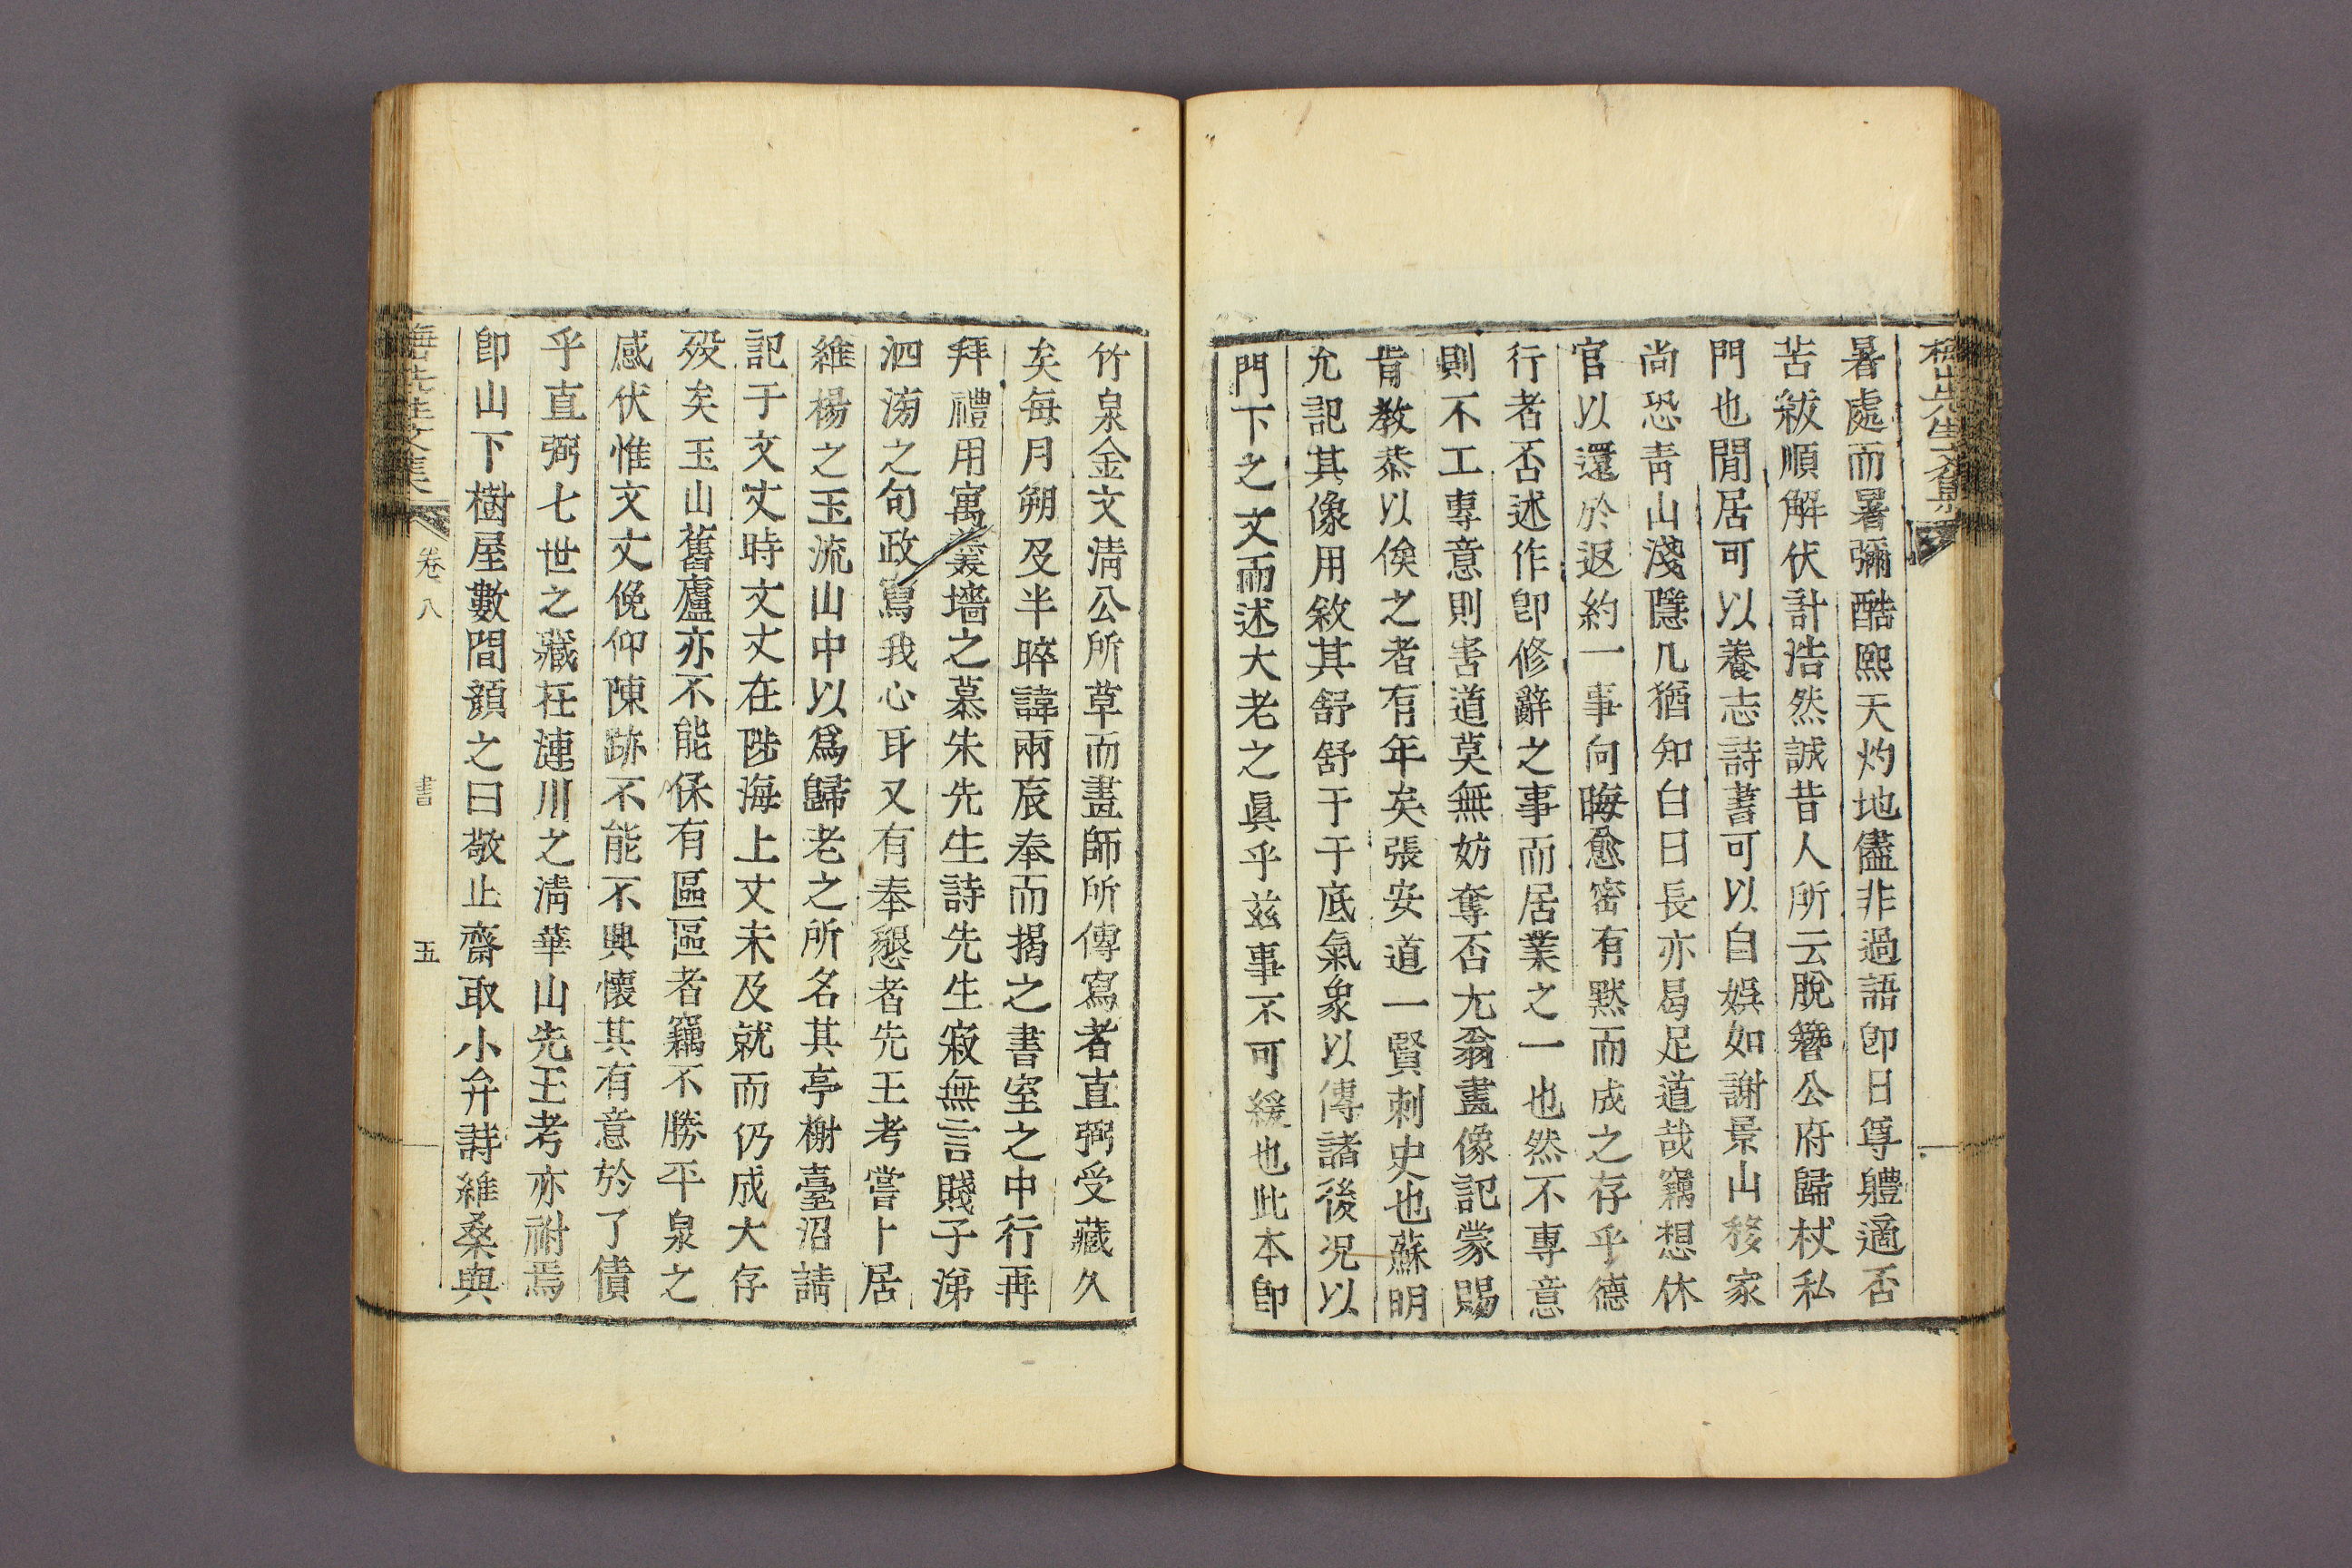 梅山先生文集
暑處而暑彌酷熙天灼地儘非過語卽日尊軆適否
苦紱順解伏計浩然誠昔人所云脫簪公府歸杖私
門也閒居可以養志詩書可以自娛如謝景山移家
尚恐靑山淺隱几猶知白日長亦曷足道哉竊想休
官以還於返約一事向晦愈密有黙而成之存乎德
行者否述作卽修辭之事而居業之一也然不專意
則不工專意則害道莫無妨奪否尤翁畫像記蒙賜
肯敎恭以俟之者有年矣張安道一賢刺史也蘇明
允記其像用敘其舒舒于于底氣象以傳諸後况以
門下之文而述大老之眞乎玆事不可緩也此本卽
竹泉金文淸公所草而畫師所傳寫者直弼受藏久
矣每月朔及半晬諱兩辰奉而揭之書室之中行再
拜禮用寓羹墻之慕朱先生詩先生寂無言賤子涕
泗滂之句政寫我心耳又有奉懇者先王考嘗卜居
維楊之玉流山中以爲歸老之所名其亭榭臺沼請
記于文丈時文丈在陟海上丈未及就而仍成大存
歿矣玉山舊廬亦不能保有區區者竊不勝平泉之
感伏惟文丈俛仰陳跡不能不興懷其有意於了債
乎直弼七世之藏在漣川之淸華山先王考亦祔焉
卽山下樹屋數間顏之曰敬止齋取小弁詩維桑與
梅山先生文集 卷八 書 五